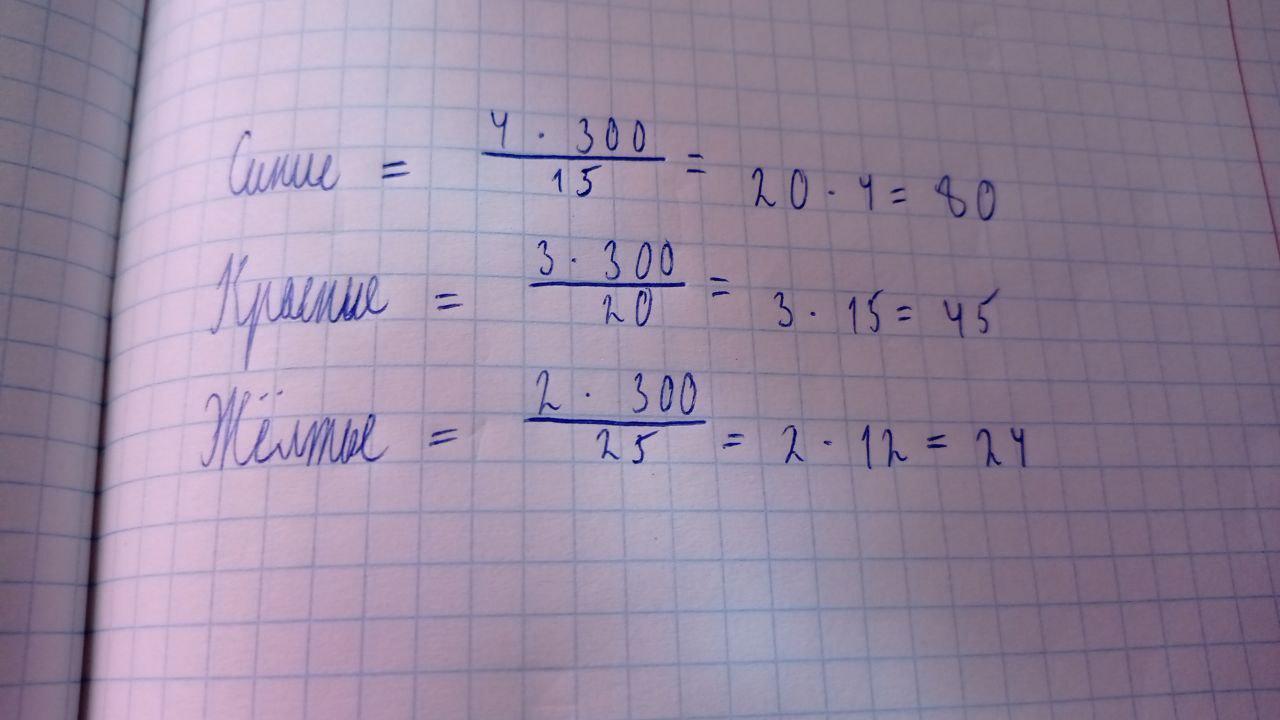 Синие = 4 · 300 / 15 = 20 · 4 = 80
Красные = 3 · 300 / 20 = 3 · 15 = 45
Жёлтые = 2 · 300 / 25 = 2 · 12 = 24